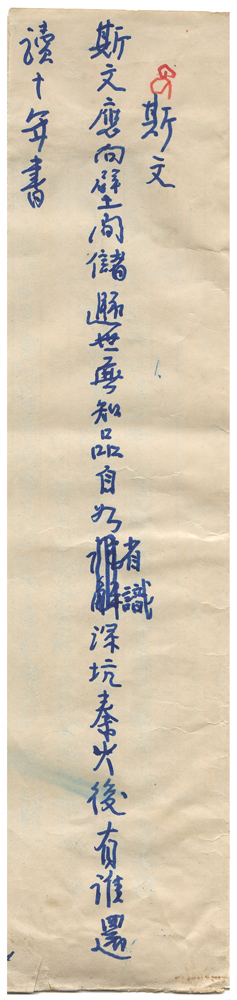 斯文
斯文應向壁間儲遯世無知品自如省識深坑秦火後有誰還
讀十年書